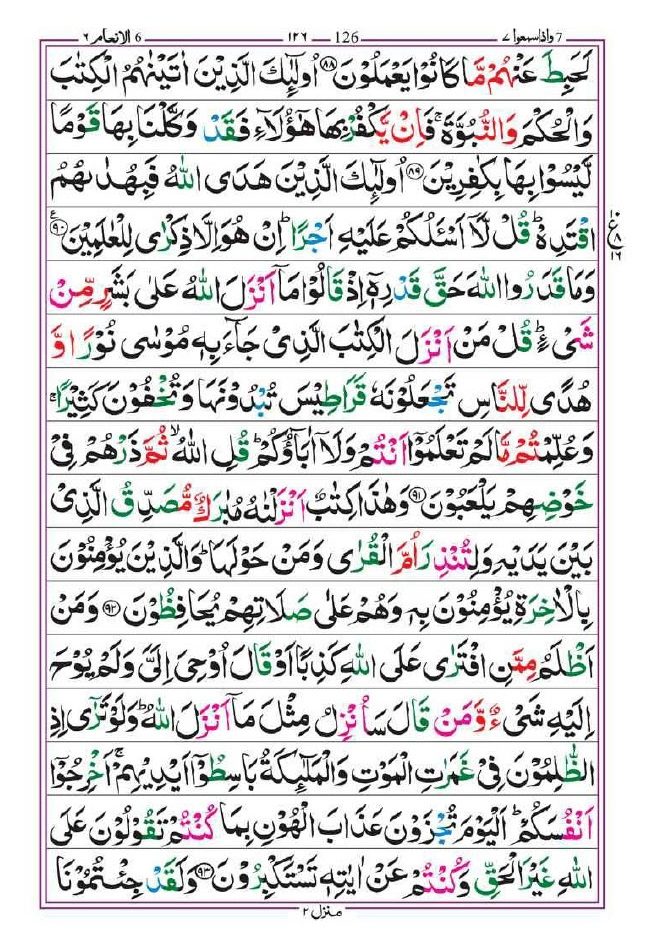 7 واذاسمعوا ٧ 126 ١٢٦ 6 الانعام ٦
لَحَبِطَ عَنۡهُمۡ مَّا كَانُوۡا يَعۡمَلُوۡنَ ﴿۸۸﴾ اُولٰٓئِكَ الَّذِيۡنَ اٰتَيۡنٰهُمُ الۡكِتٰبَ
وَالۡحُكۡمَ وَالنُّبُوَّةَ‌ ۚ فَاِنۡ يَّكۡفُرۡ بِهَا هٰٓؤُلَۤاءِ فَقَدۡ وَكَّلۡنَا بِهَا قَوۡمًا
لَّيۡسُوۡا بِهَا بِكٰفِرِيۡنَ ﴿۸۹﴾ اُولٰٓئِكَ الَّذِيۡنَ هَدَى اللّٰهُ‌ فَبِهُدٰٮهُمُ
اقۡتَدِهۡ ‌ؕ قُلۡ لَّاۤ اَسۡئَلُكُمۡ عَلَيۡهِ اَجۡرًا‌ ؕ اِنۡ هُوَ اِلَّا ذِكۡرٰى لِلۡعٰلَمِيۡنَ ﴿۹۰﴾
ع ٨ ١٦
وَمَا قَدَرُوا اللّٰهَ حَقَّ قَدۡرِهٖۤ اِذۡ قَالُوۡا مَاۤ اَنۡزَلَ اللّٰهُ عَلٰى بَشَرٍ مِّنۡ
شَىۡءٍ ؕ قُلۡ مَنۡ اَنۡزَلَ الۡكِتٰبَ الَّذِىۡ جَآءَ بِهٖ مُوۡسٰى نُوۡرًا وَّ
هُدًى لِّلنَّاسِ‌ تَجۡعَلُوۡنَهٗ قَرَاطِيۡسَ تُبۡدُوۡنَهَا وَتُخۡفُوۡنَ كَثِيۡرًا‌ ۚ
وَعُلِّمۡتُمۡ مَّا لَمۡ تَعۡلَمُوۡۤا اَنۡتُمۡ وَلَاۤ اٰبَآؤُكُمۡ‌ؕ قُلِ اللّٰهُ‌ۙ ثُمَّ ذَرۡهُمۡ فِىۡ
خَوۡضِهِمۡ يَلۡعَبُوۡنَ ﴿۹۱﴾ وَهٰذَا كِتٰبٌ اَنۡزَلۡنٰهُ مُبٰرَكٌ مُّصَدِّقُ الَّذِىۡ
بَيۡنَ يَدَيۡهِ وَلِتُنۡذِرَ اُمَّ الۡقُرٰى وَمَنۡ حَوۡلَهَا‌ ؕ وَالَّذِيۡنَ يُؤۡمِنُوۡنَ
بِالۡاٰخِرَةِ يُؤۡمِنُوۡنَ بِهٖ‌ وَهُمۡ عَلٰى صَلَاتِهِمۡ يُحَافِظُوۡنَ ﴿۹۲﴾ وَمَنۡ
اَظۡلَمُ مِمَّنِ افۡتَرٰى عَلَى اللّٰهِ كَذِبًا اَوۡ قَالَ اُوۡحِىَ اِلَىَّ وَلَمۡ يُوۡحَ
اِلَيۡهِ شَىۡءٌ وَّمَنۡ قَالَ سَاُنۡزِلُ مِثۡلَ مَاۤ اَنۡزَلَ اللّٰهُ‌ؕ وَلَوۡ تَرٰٓى اِذِ
الظّٰلِمُوۡنَ فِىۡ غَمَرٰتِ الۡمَوۡتِ وَالۡمَلٰٓئِكَةُ بَاسِطُوۡۤا اَيۡدِيۡهِمۡ‌ۚ اَخۡرِجُوۡۤا
اَنۡفُسَكُمُ‌ؕ اَلۡيَوۡمَ تُجۡزَوۡنَ عَذَابَ الۡهُوۡنِ بِمَا كُنۡتُمۡ تَقُوۡلُوۡنَ عَلَى
اللّٰهِ غَيۡرَ الۡحَـقِّ وَكُنۡتُمۡ عَنۡ اٰيٰتِهٖ تَسۡتَكۡبِرُوۡنَ ﴿۹۳﴾ وَلَقَدۡ جِئۡتُمُوۡنَا
منزل ٢